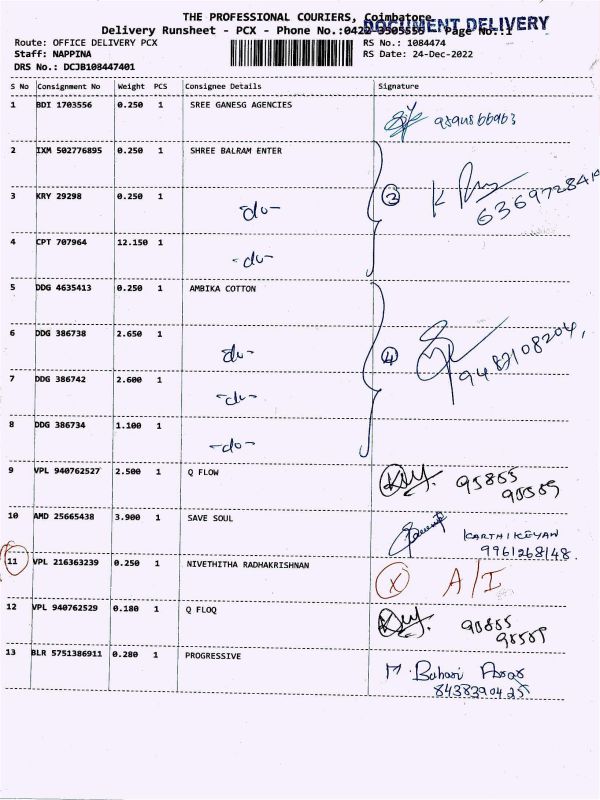 THE PROFESSIONAL COURIERS, Coimbatore
DOCUMENT DELIVERY
Delivery Runsheet - PCX - Phone No.:0422 3505556 - Page No.:1
Route: OFFICE DELIVERY PCX RS No.: 1084474
Staff: NAPPINA RS Date: 24-Dec-2022
DRS No.: DCJB108447401
S No Consignment No Weight PCS Consignee Details Signature
1 BDI 1703556 0.250 1 SREE GANESG AGENCIES
2 IXM 502776895 0.250 1 SHREE BALRAM ENTER
3 KRY 29298 0.250 1 -do- 3 K
6369728414
4 CPT 707964 12.150 1 -do-
5 DDG 4635413 0.250 1 AMBIKA COTTON
6 DDG 386738 2.650 1 -do- 4
7 DDG 386742 2.600 1 -do-
8 DDG 386734 1.100 1 -do-
9 VPL 940762527 2.500 1 Q FLOW
10 AMD 25665438 3.900 1 SAVE SOUL KARTHIKEYAN
9961268148.
11 VPL 216363239 0.250 1 NIVETHITHA RADHAKRISHNAN X A/I
12 VPL 940762529 0.180 1 Q FLOQ
13 BLR 5751386911 0.280 1 PROGRESSIVE M. Buhari
8438390425